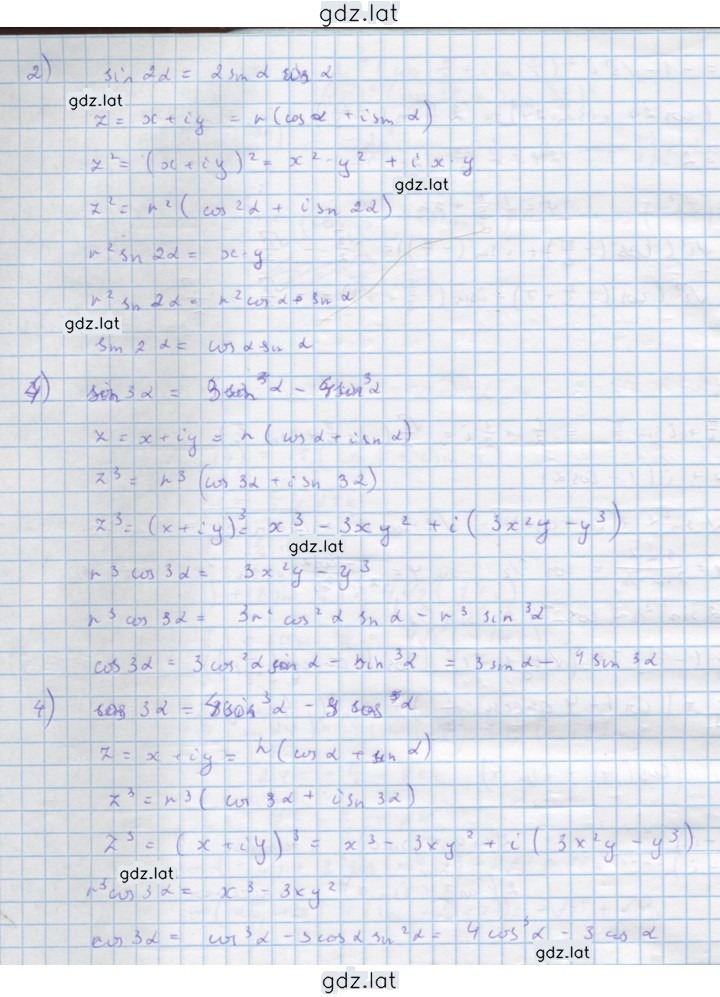 gdz.lat
2) sin 2α = 2 sin α cos α
gdz.lat
z = x + iy = r (cos α + i sin α)
z² = (x + iy)² = x² - y² + i x·y
gdz.lat
z² = r² ( cos 2α + i sin 2α)
r² sin 2α = x·y
r² sin 2α = r² cos α · sin α
gdz.lat
sin 2 α = cos α sin α
sin 3α = 3 sin³ α - 4 sin³ α
z = x + iy = r ( cos α + i sin α)
z³ = r³ (cos 3α + i sin 3α)
z³ = (x + iy)³ = x³ - 3xy² + i ( 3x²y - y³ )
gdz.lat
r³ cos 3α = 3x²y - y³
r³ cos 3α = 3r² cos² α sin α - r³ sin³ α
cos 3α = 3 cos² α sin α - sin³ α = 3 sin α - 4 sin 3α
4) cos 3α =
z = x + iy = r (cos α + sin α)
z³ = r³ ( cos 3α + i sin 3α)
z³ = ( x + iy )³ = x³ - 3xy² + i ( 3x²y - y³ )
gdz.lat
r³ cos 3α = x³ - 3xy²
cos 3α = cos³ α - 3 cos α sin² α = 4 cos³ α - 3 cos α
gdz.lat
gdz.lat